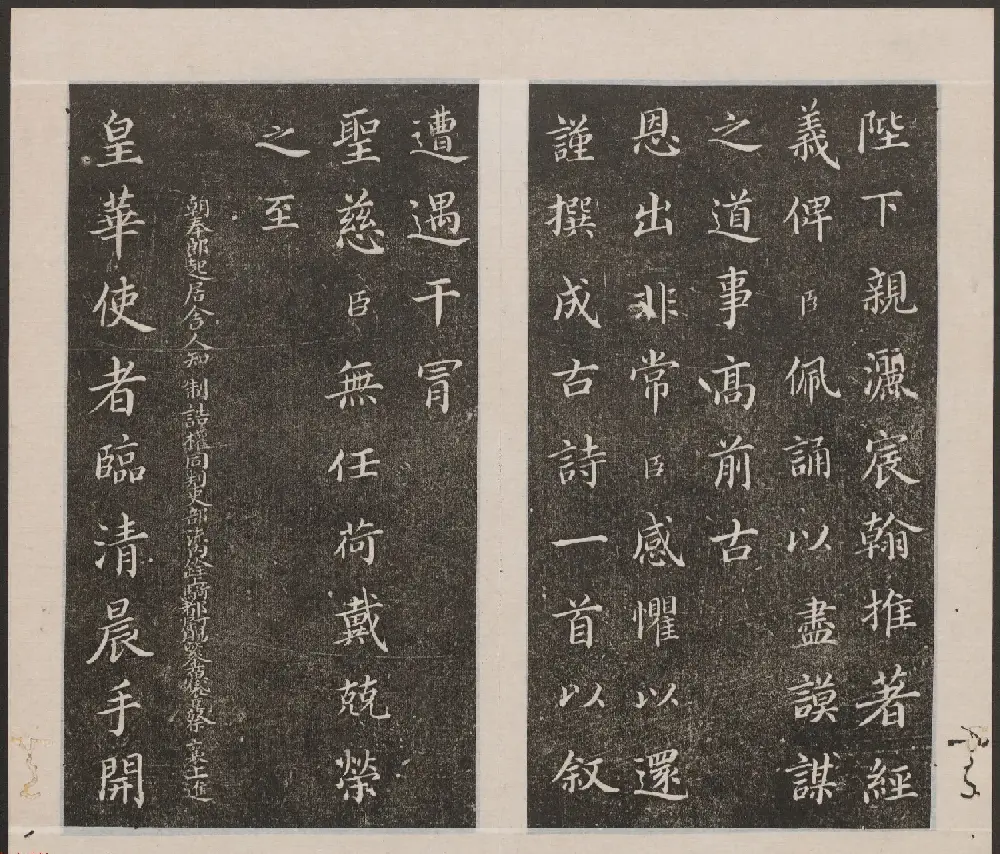 陛下親灑宸翰推著經
義俾臣佩誦以盡謨謀
之道事高前古
恩出非常臣感懼以還
謹撰成古詩一首以叙
遭遇干冒
聖慈臣無任荷戴兢榮
之至
朝奉郎起居舍人知制誥權同判吏部流內銓騎都尉臣蔡襄上進
皇華使者臨清晨手開